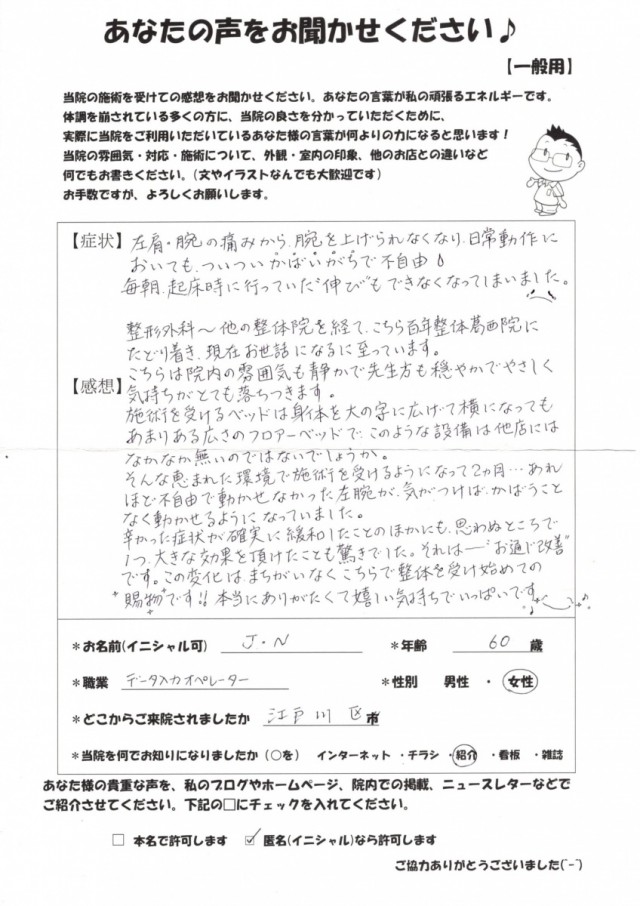 あなたの声をお聞かせください♪
【一般用】
当院の施術を受けての感想をお聞かせください。あなたの言葉が私の頑張るエネルギーです。
体調を崩されている多くの方に、当院の良さを分かっていただくために、
実際に当院をご利用いただいているあなた様の言葉が何よりの力になると思います!
当院の雰囲気・対応・施術について、外観・室内の印象、他のお店との違いなど
何でもお書きください。(文やイラストなんでも大歓迎です)
お手数ですが、よろしくお願いします。
【症状】左肩・腕の痛みから、腕を上げられなくなり、日常動作に
おいても、ついついかばいがちで不自由♪
毎朝、起床時に行っていた"伸び"もできなくなってしまいました。
整形外科〜他の整体院を経て、こちら百年整体葛西院に
たどり着き、現在お世話になるに至っています。
こちらは院内の雰囲気も静かで先生方も穏やかでやさしく
【感想】気持ちがとても落ちつきます。
施術を受けるベッドは身体を大の字に広げて横になっても
あまりある広さのフロアーベッドで、このような設備は他店には
なかなか無いのではないでしょうか。
そんな恵まれた環境で施術を受けるようになって2ヵ月…あれ
ほど不自由で動かせなかった左腕が、気がつけば、かばうこと
なく動かせるようになっていました。
辛かった症状が確実に緩和したことのほかにも、思わぬところで
1つ、大きな効果を頂けたことも驚きでした。それは―"お通じ改善"
です。この変化は、まちがいなくこちらで整体を受け始めての
"賜物"です!!本当にありがたくて嬉しい気持ちでいっぱいです
*お名前(イニシャル可) J・N *年齢 60 歳
*職業 データ入力オペレーター *性別 男性 ・ 女性
*どこからご来院されましたか 江戸川 区市
*当院を何でお知りになりましたか(○を) インターネット ・チラシ ・紹介 ・看板 ・雑誌
あなた様の貴重な声を、私のブログやホームページ、院内での掲載、ニュースレターなどで
ご紹介させてください。下記の□にチェックを入れてください。
□ 本名で許可します ☑ 匿名(イニシャル)なら許可します
ご協力ありがとうございました(^-^)